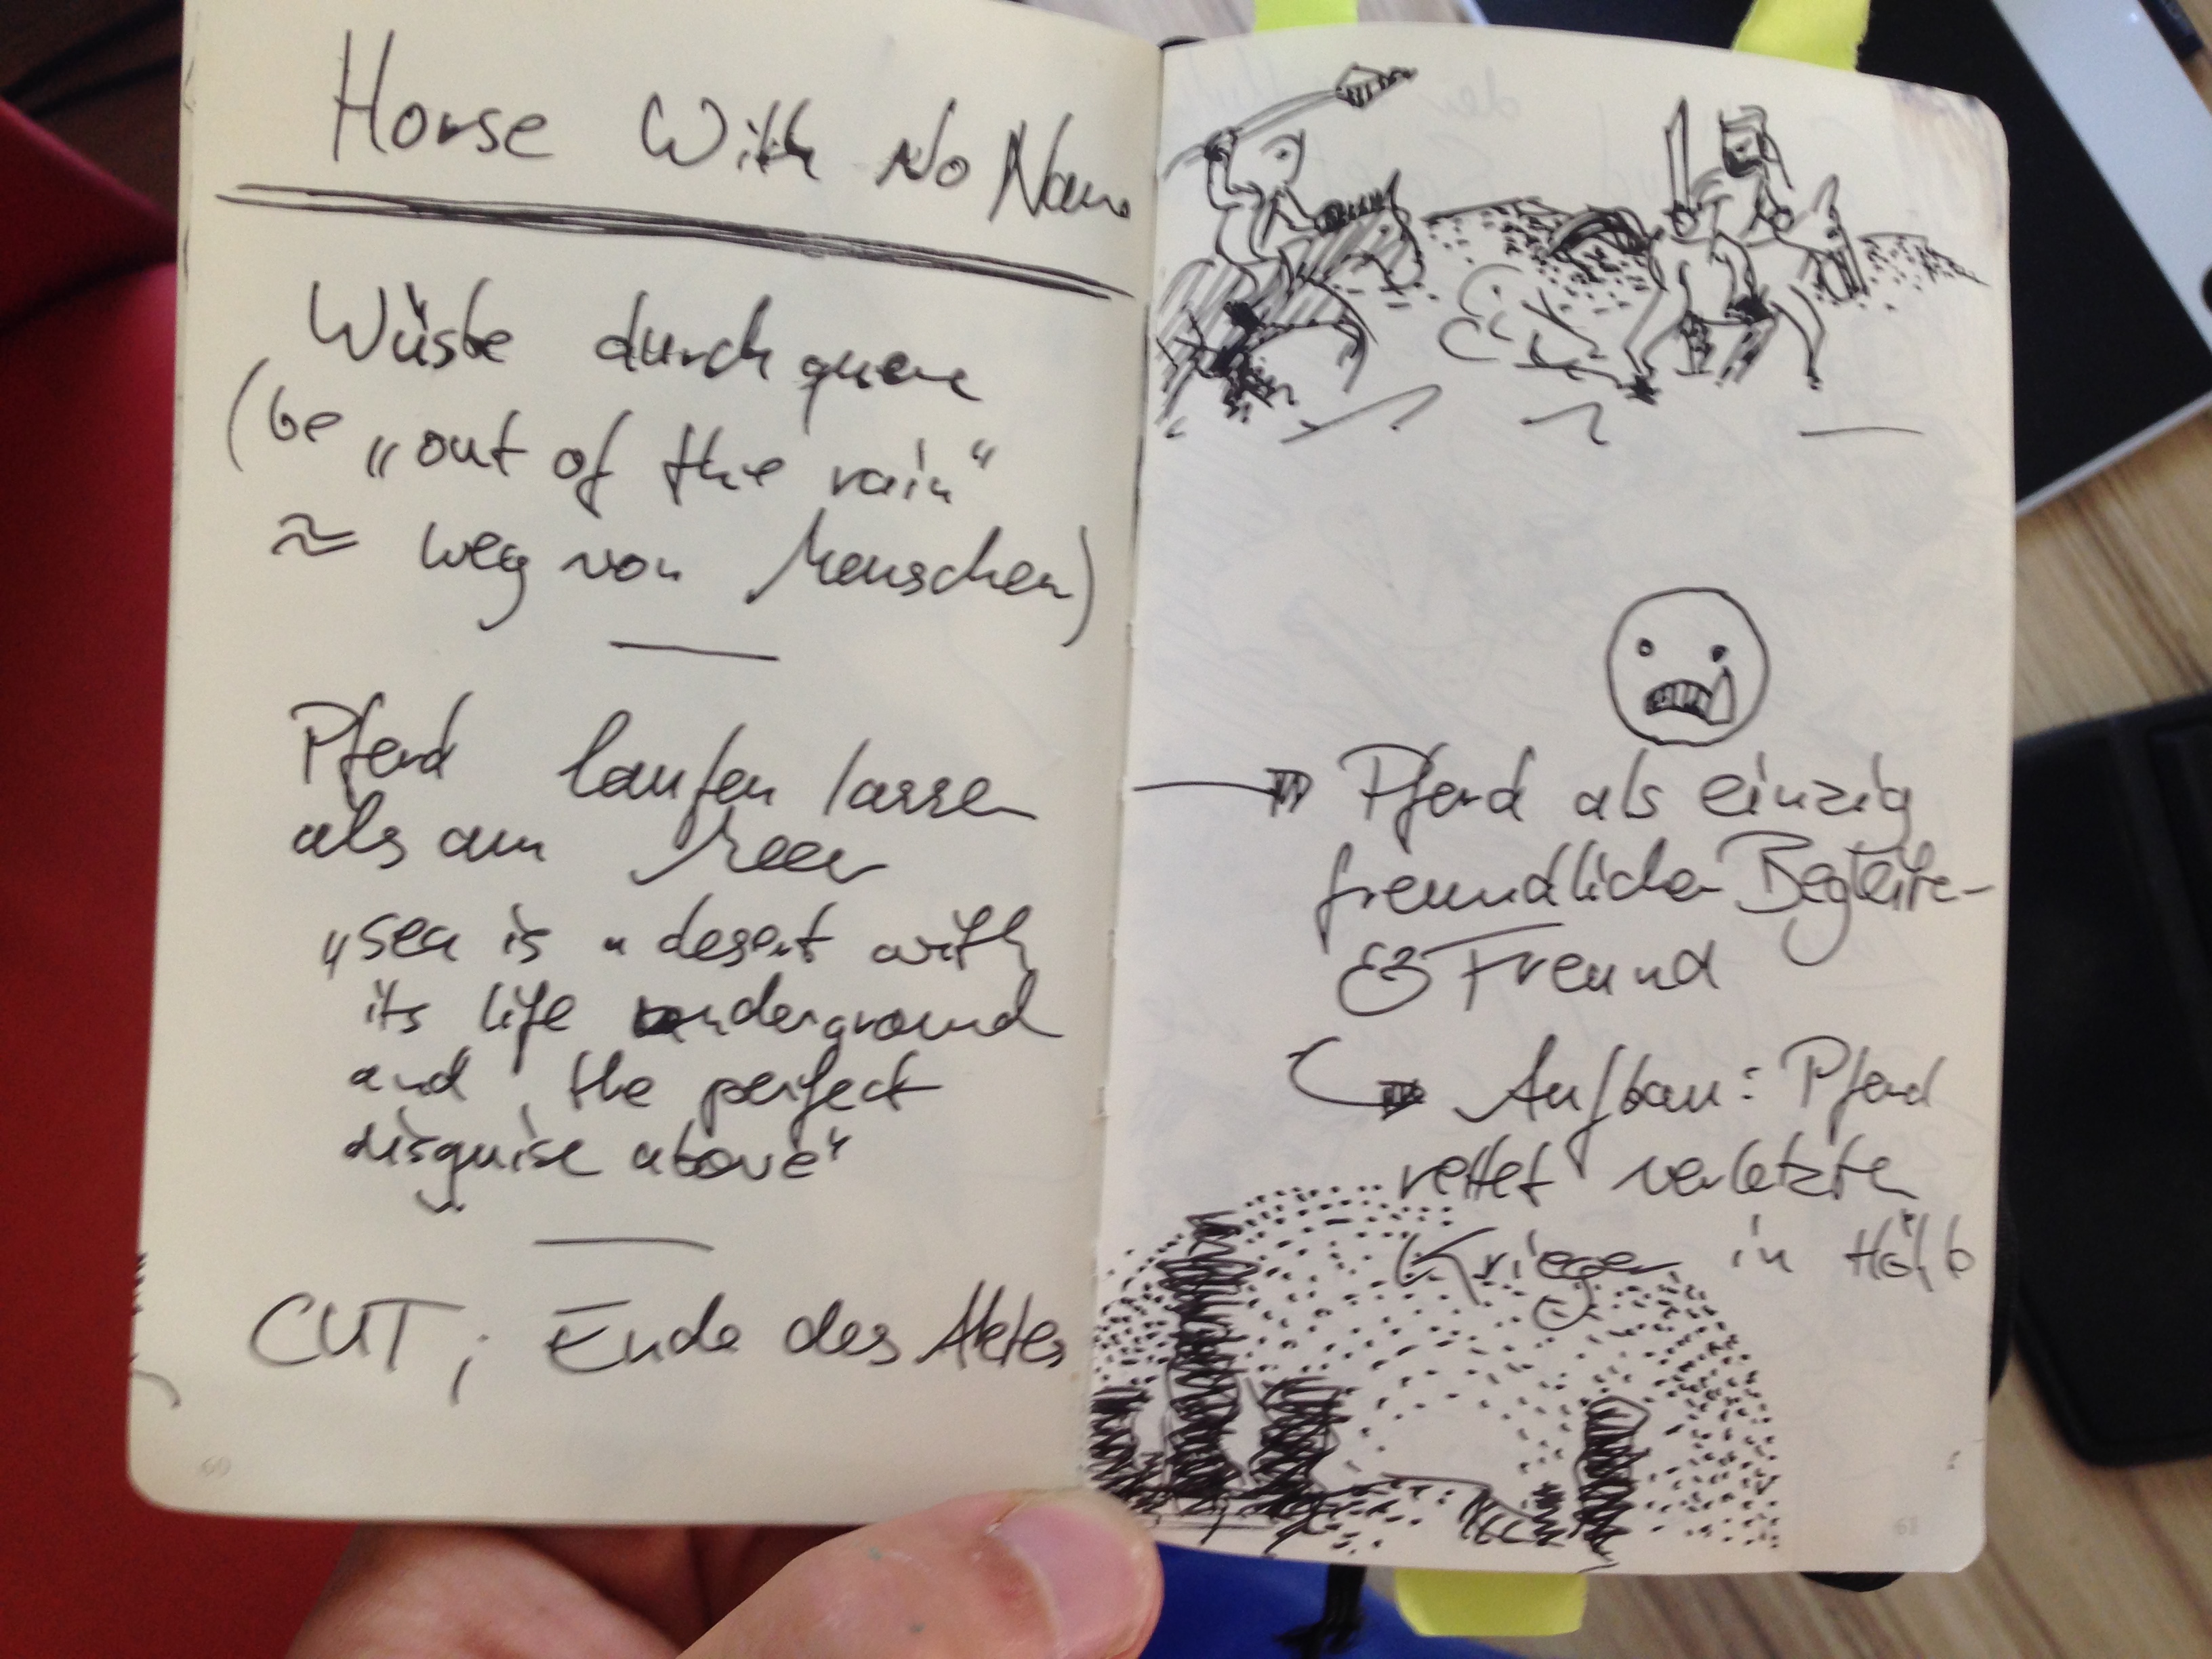 Horse With No Name
Wüste durchquere
(be „out of the rain“
≈ weg von Menschen)
Pferd laufen lassen
als am Meer
„sea is a desert with
its life underground
and the perfect
disguise above“
CUT; Ende des Aktes
60
Pferd als einzig
freundlicher Begleiter
& Freund
Aufbau: Pferd
rettet verletzten
Krieger in Höhle
61